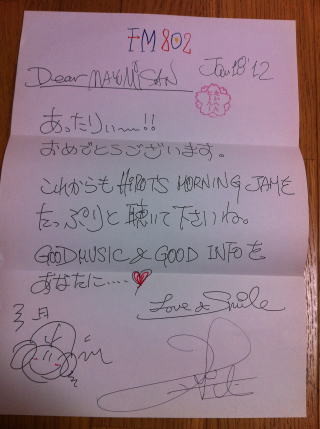 FM802
Dear MAYUMI SAN Jan 18 '12
あったりぃ〜!!
おめでとうございます。
これからも HIRO'S MORNING JAMを
たっぷりと聴いて下さいね。
GOOD MUSIC & GOOD INFOを
あなたに....
Love & Smile